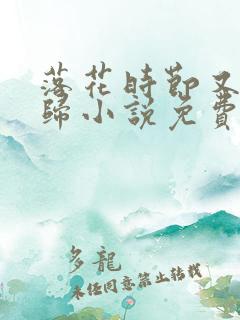 落花時節又
歸小説免費
多龍
未经同意禁止转载